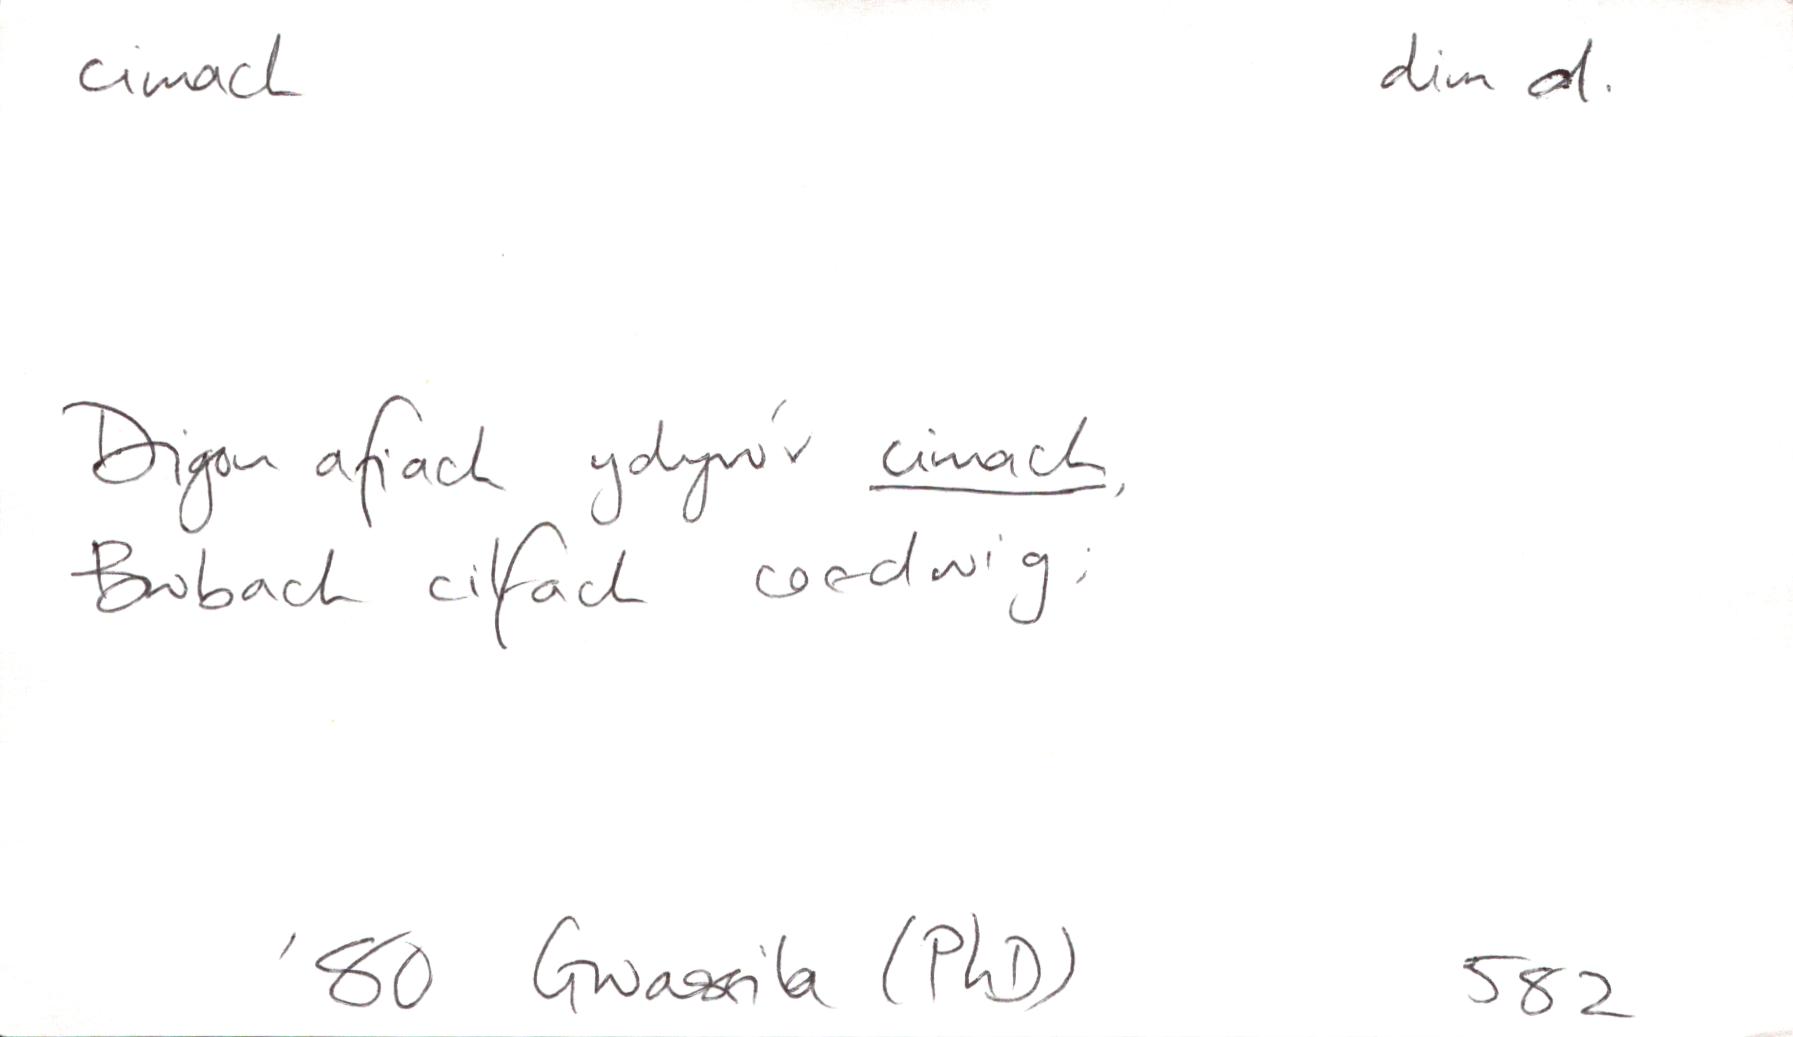 cimach dim d.
Digon afiach ydyw'r cimach,
Bwbach cilfach coedwig;
'80 Gwassila (PhD) 582